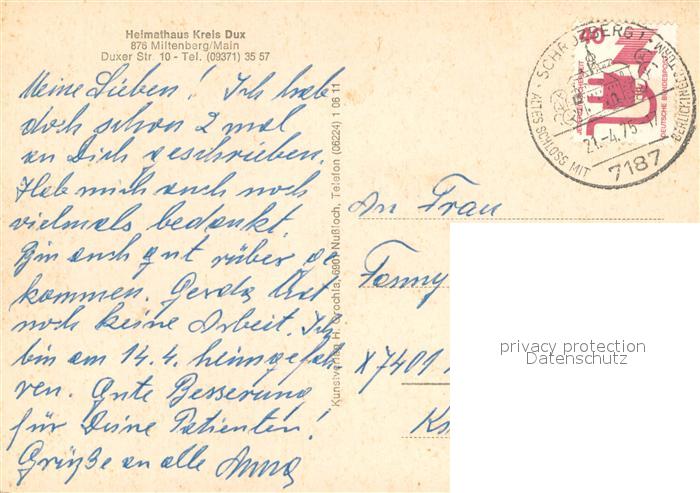 Heimathaus Kreis Dux
876 Miltenberg/Main
Duxer Str. 10 - Tel. (09371) 35 57
Meine Lieben! Ich habe
doch schon 2 mal
an Dich geschrieben.
Hab mich auch noch
vielmals bedankt.
Bin auch gut rüber ge
kommen. Gerda hat
noch keine Arbeit. Ich
bin am 14.4. heimgefah
ren. Gute Besserung
für Deine Patienten!
Grüße an alle Anna
Kunstverlag H. Krochta, 6907 Nußloch, Telefon (06224) 1 06 11
40
DEUTSCHE BUNDESPOST
SCHROZBERG 1
ALTES SCHLOSS MIT BERLICHINGER TURM
21.-4.75-17
7187
An Frau
Fanny
X7401
privacy protection
Datenschutz